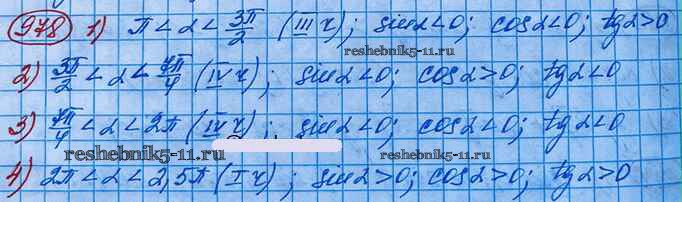 978 1) π < α < 3π/2 (III ч); sinα < 0; cosα < 0; tgα > 0
reshebnik5-11.ru
2) 3π/2 < α < 7π/4 (IV ч); sinα < 0; cosα > 0; tgα < 0
3) 7π/4 < α < 2π (IV ч); sinα < 0; cosα < 0; tgα < 0
reshebnik5-11.ru reshebnik5-11.ru
4) 2π < α < 2,5π (I ч); sinα > 0; cosα > 0; tgα > 0